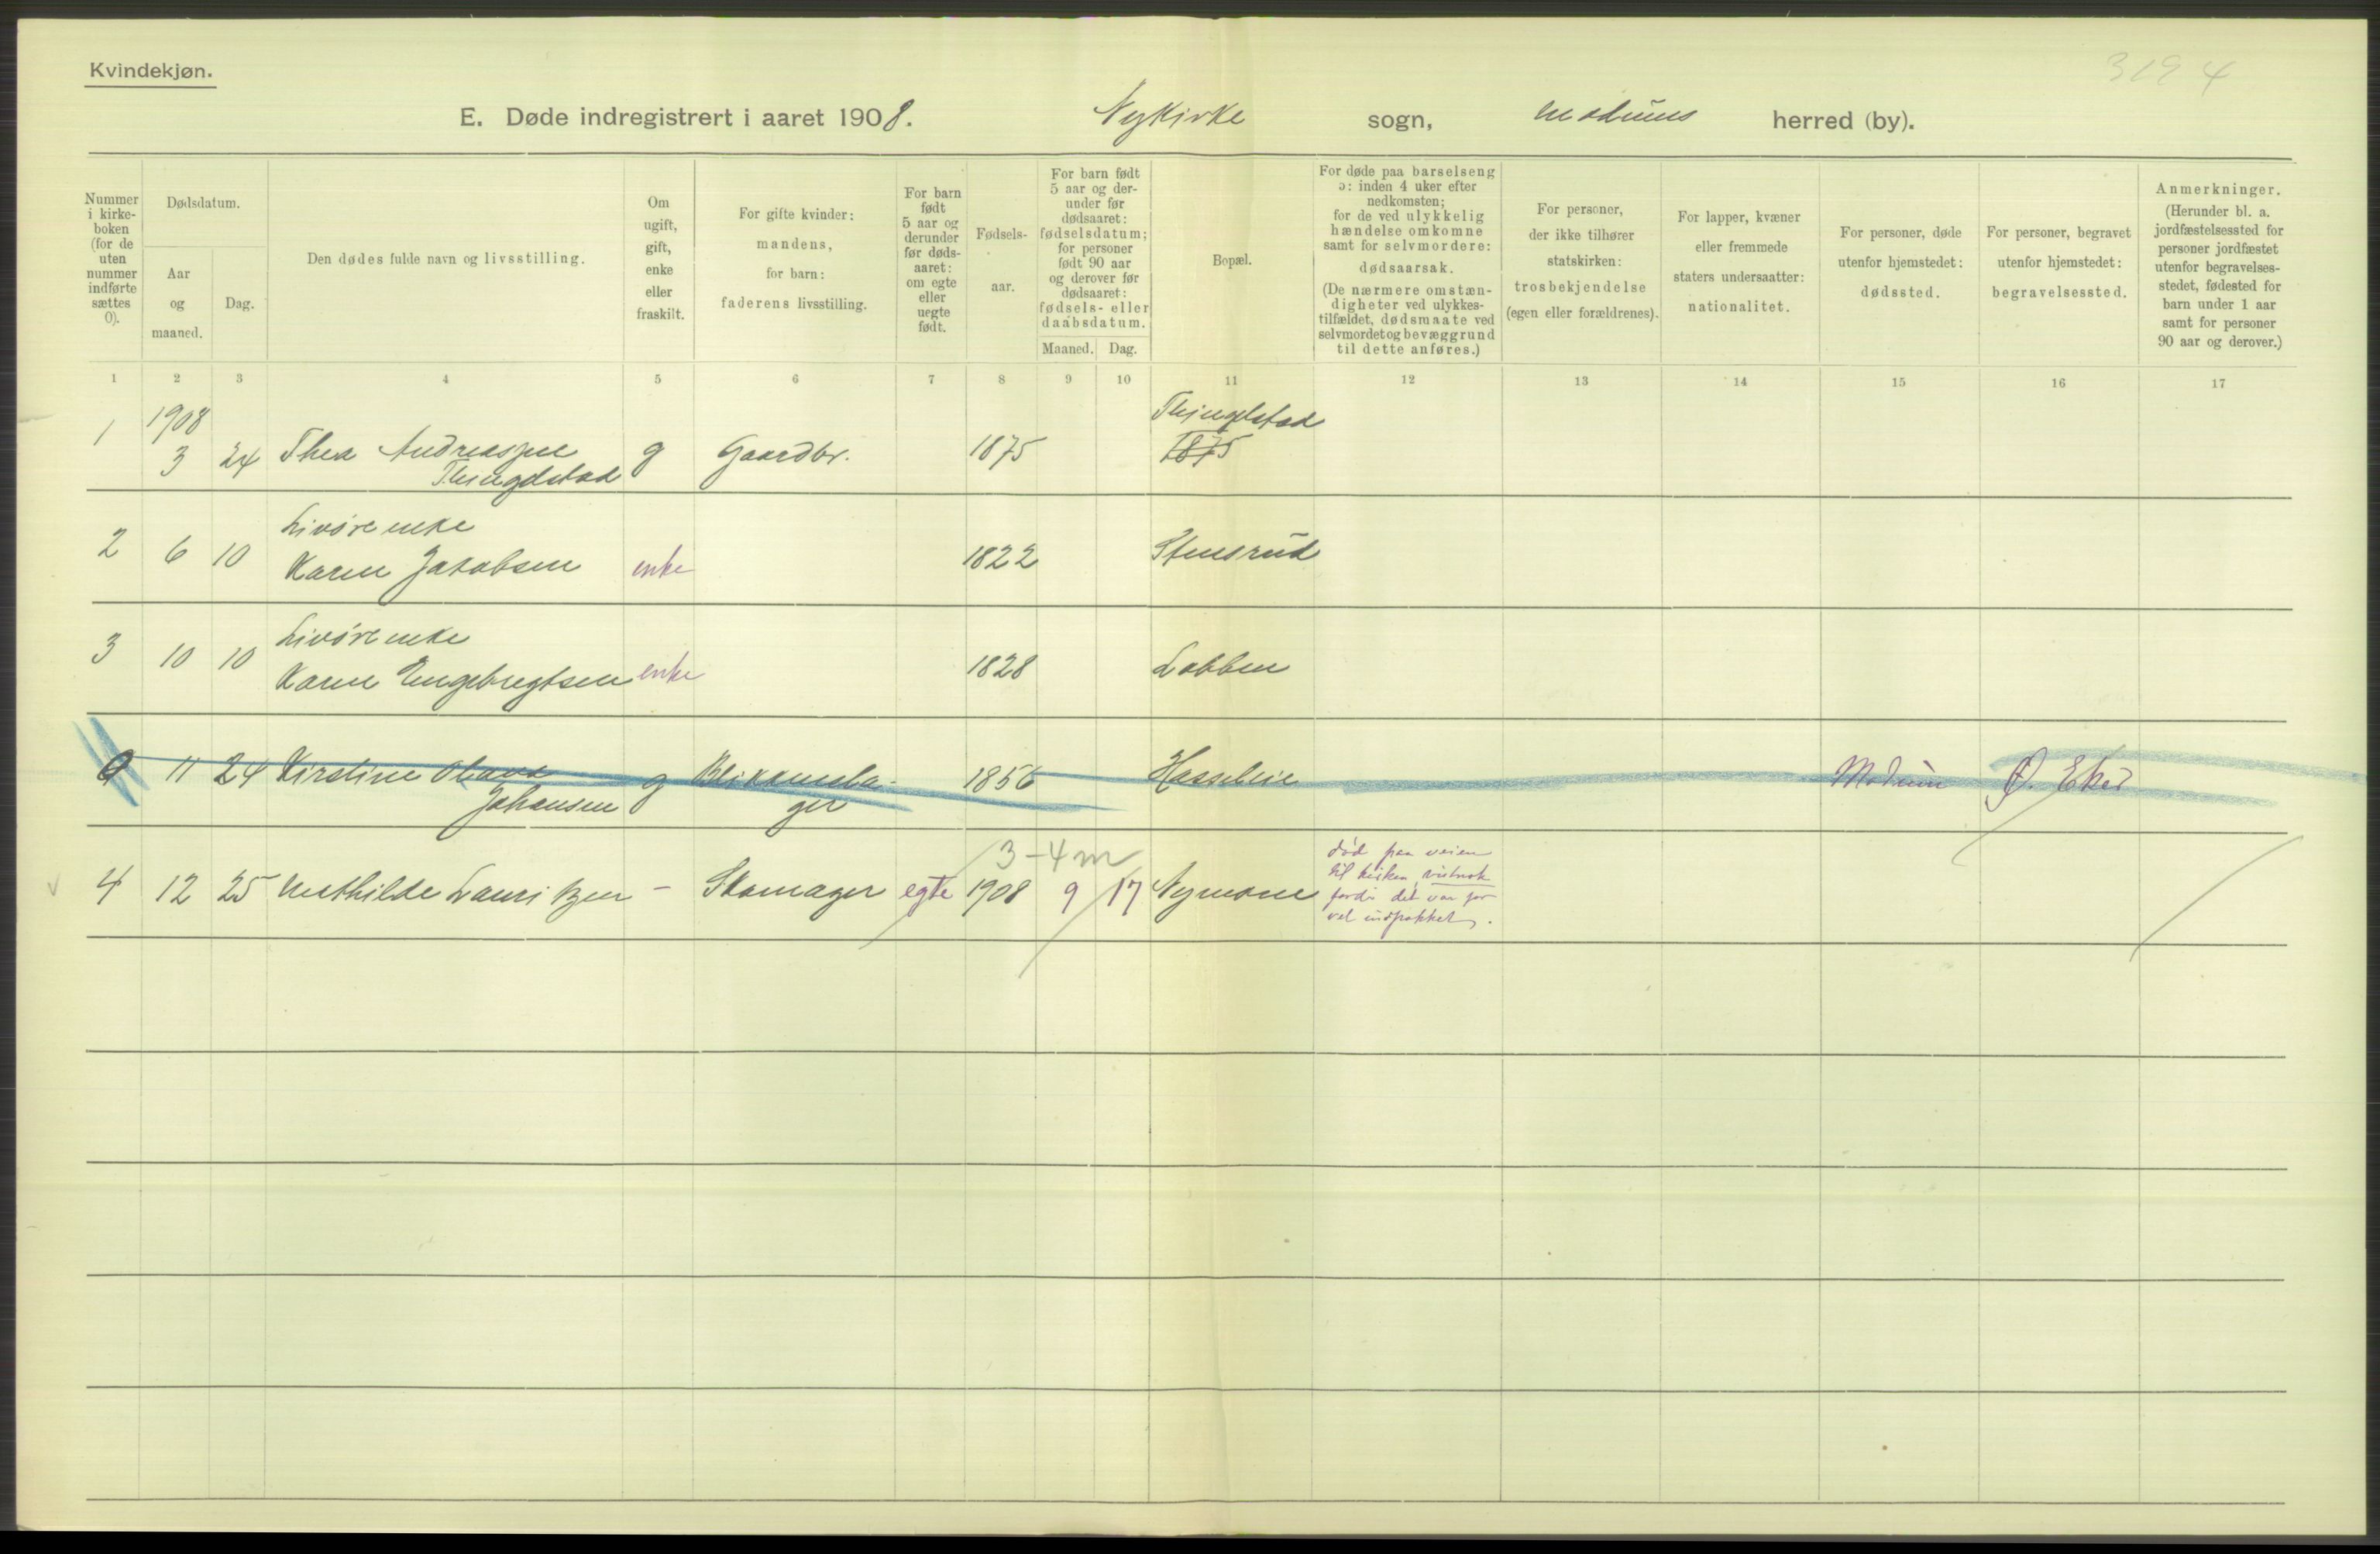 Kvindekjøn.
3194
E. Døde indregistrert i aaret 1908. Nykirke sogn, Modums herred (by).
Nummer i kirke-boken (for de uten nummer indførte sættes 0).
Dødsdatum.
Aar og maaned.
Dag.
Den dødes fulde navn og livsstilling.
Om ugift, gift, enke eller fraskilt.
For gifte kvinder: mandens, for barn: faderens livsstilling.
For barn født 5 aar og derunder før døds-aaret: om egte eller uegte født.
Fødsels-aar.
For barn født 5 aar og der-under før dødsaaret: fødselsdatum; for personer født 90 aar og derover før dødsaaret: fødsels- eller daabsdatum.
Maaned. Dag.
Bopæl.
For døde paa barselseng ɔ: inden 4 uker efter nedkomsten; for de ved ulykkelig hændelse omkomne samt for selvmordere: dødsaarsak. (De nærmere omstæn-digheter ved ulykkes-tilfældet, dødsmaate ved selvmordet og bevæggrund til dette anføres.)
For personer, der ikke tilhører statskirken: trosbekjendelse (egen eller forældrenes).
For lapper, kvæner eller fremmede staters undersaatter: nationalitet.
For personer, døde utenfor hjemstedet: dødssted.
For personer, begravet utenfor hjemstedet: begravelsessted.
Anmerkninger. (Herunder bl. a. jordfæstelsessted for personer jordfæstet utenfor begravelses-stedet, fødested for barn under 1 aar samt for personer 90 aar og derover.)
1 2 3 4 5 6 7 8 9 10 11 12 13 14 15 16 17
1908 Thingelstad
1 3 24 Thea Andreasen Thingelstad g Gaardbr. 1875 1875
Livøre enke
2 6 10 Karen Jakobsen enke 1822 Stensrud
Livøre enke
3 10 10 Karen Engebregtsen enke 1828 Lobben
0 11 24 Kirstine Olava Johansen g Blikkenslager 1856 Hasseleie Modum Ø. Eker
3-4 m
4 12 25 Mathilde Lauritzen - Skomager egte 1908 9 17 Nymoene
død paa veien
til kirken, vistnok
fordi det var for
vel indpakket.